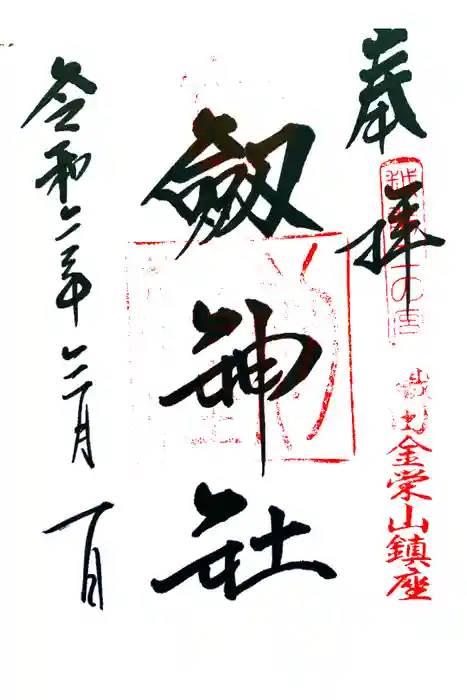 奉拝
金栄山鎮座
劔神社
令和二年二月一日